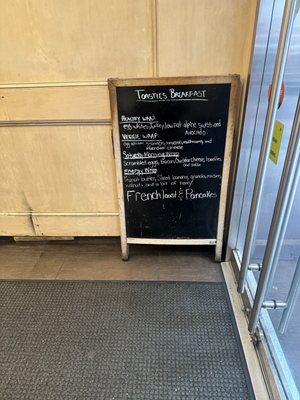 Toasties Breakfast
Healthy Wrap
egg whites, Turkey, low fat alpine swiss and
Avocado.
Veggie Wrap
egg whites, spinach, tomatoes, mushrooms, and
cheese
Saturday Morning Wrap
Scrambled eggs, Bacon, cheddar cheese, homefries,
and salsa
Energy Wrap
Peanut butter, sliced banana, granola, raisins,
walnuts and a bit of honey
French toast & Pancakes